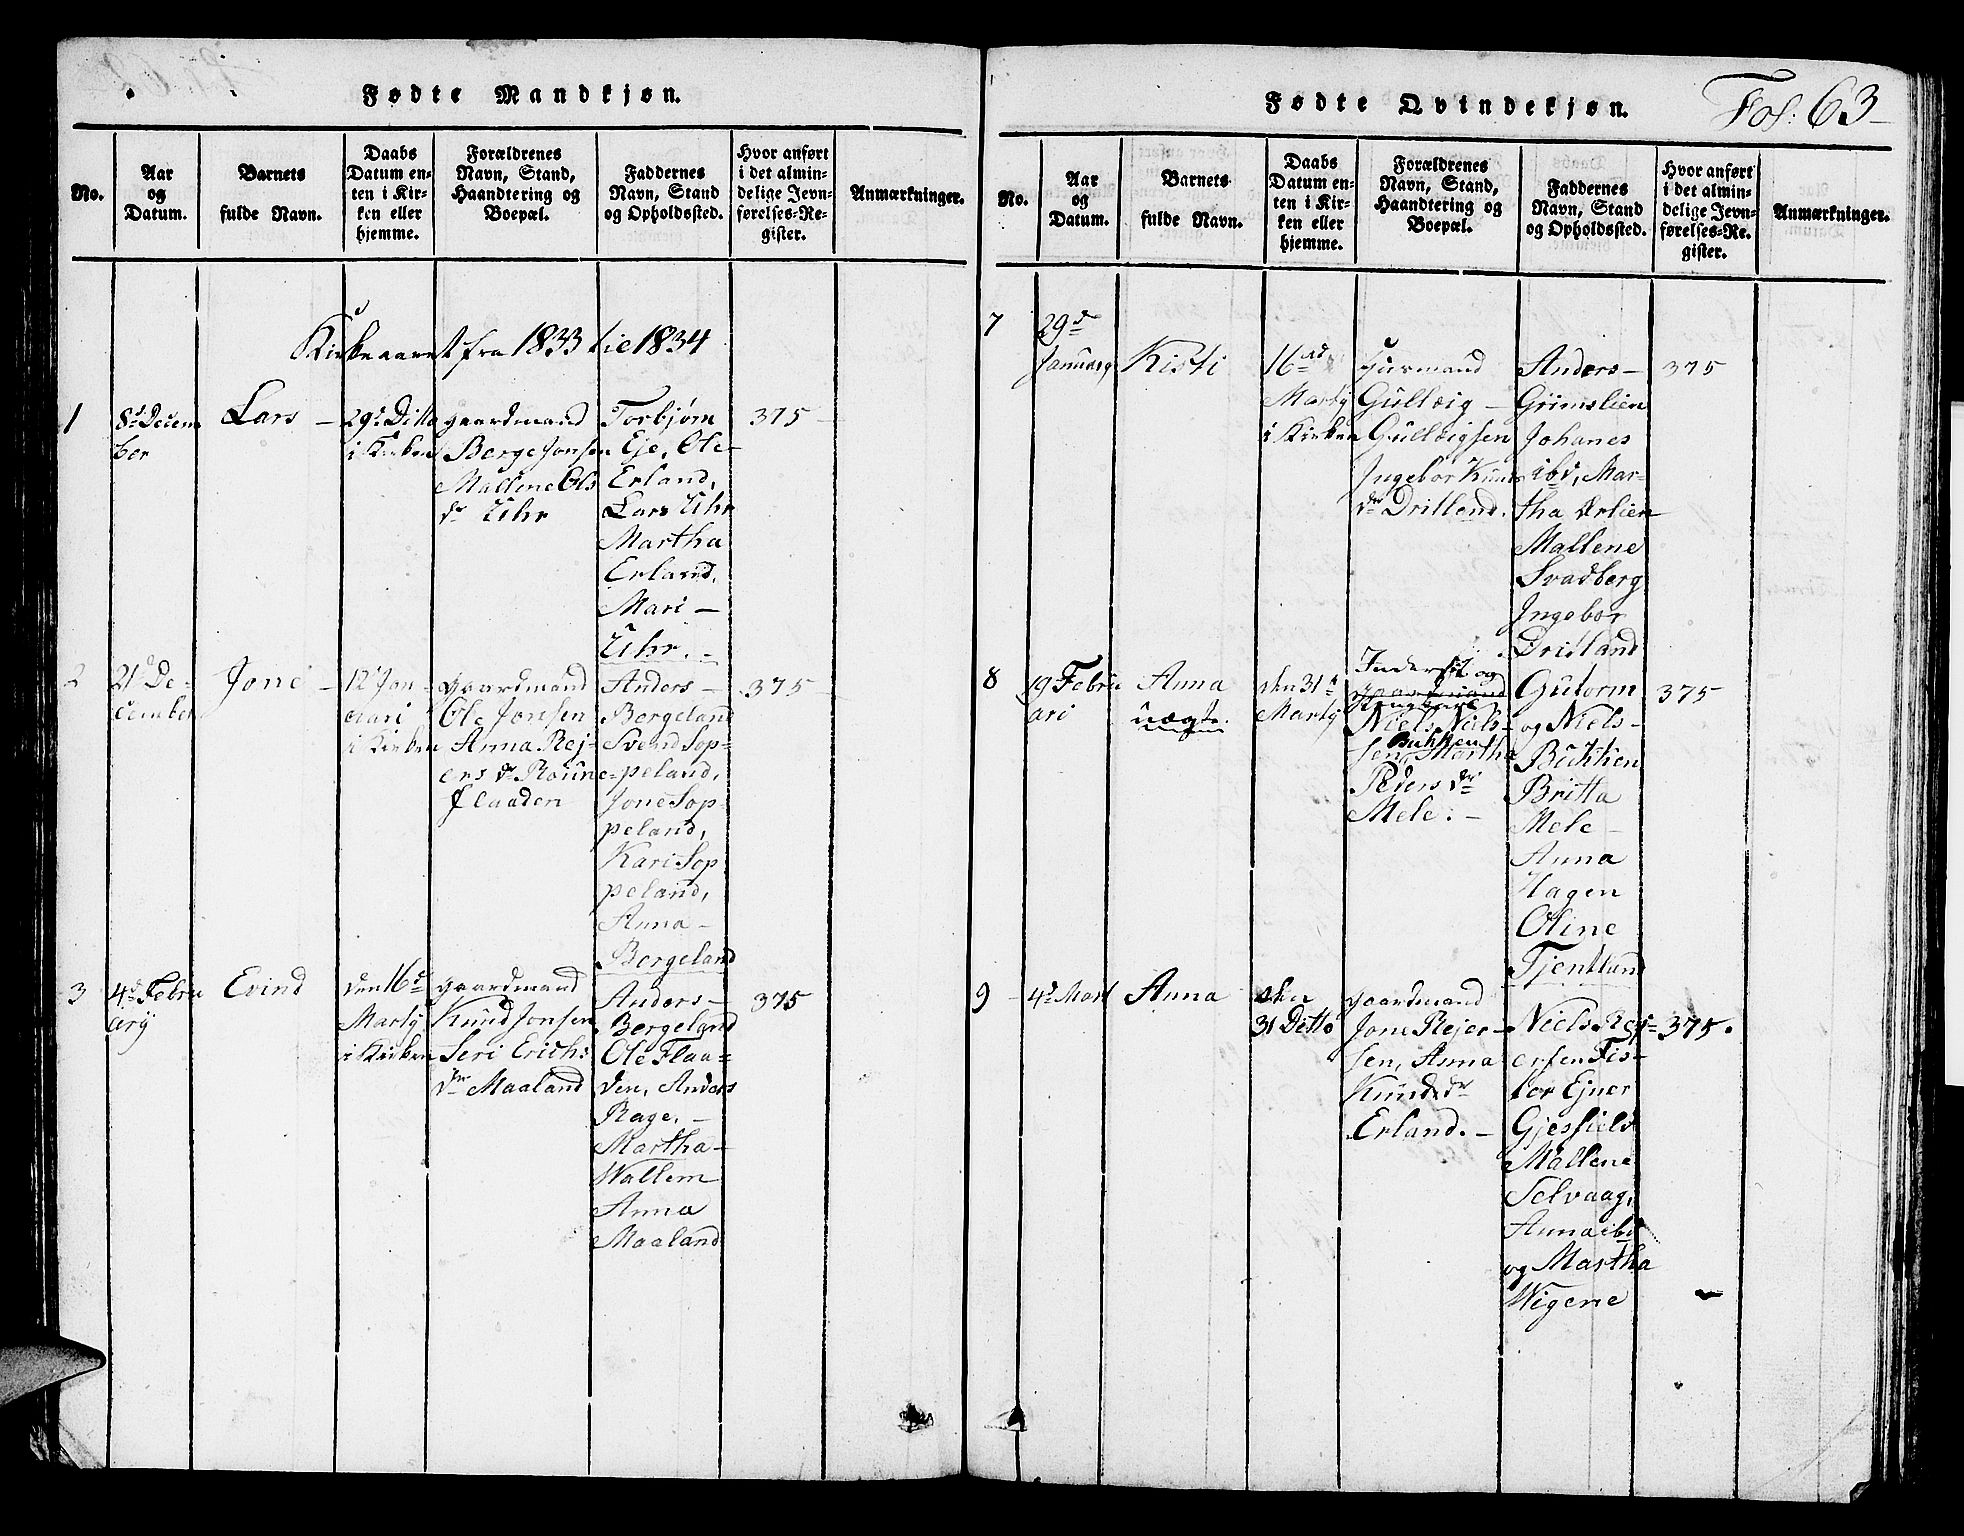 Fødte Mandkjøn.
No.
Aar
og
Datum.
Barnets
fulde Navn.
Daabs
Datum en-
ten i Kir-
ken eller
hjemme.
Forældrenes
Navn, Stand,
Haandtering og
Boepæl.
Faddernes
Navn, Stand
og Opholdssted.
Hvor anført
i det almin-
delige Jevn-
førelses-Re-
gister.
Anmærkninger.
Kirkeaaret fra 1833 til 1834
1
8d Decem
ber
Lars –
29d Ditto
i Kirken
gaardmand
Berge Jonsen
Mallene Ols
dr Uhr
Torbjørn
Eje, Ole
Erland,
Lars Uhr
Martha
Erland,
Mari –
Uhr. –
375 –
2
21d De-
cember
Jone –
12d Jan-
uari
i Kirken
gaardmand
Ole Jonsen
Anna Rej-
ers dr
Flaaden
Anders –
Bergeland
Svend Sop-
peland,
Jone Sop
peland,
Kari Sop
peland,
Anna –
Bergeland
375 –
3
4d Febru
ary
Evind
den 16d
Marty
i Kirken
gaardmand
Knud Jonsen
Seri Erichs
dr Maaland
Anders –
Bergeland
Ole Flaa-
den, Anders
Rage. –
Martha –
Wallem
Anna
Maaland
375
Fol: 63
Fødte Qvindekjøn.
No.
Aar
og
Datum.
Barnets
fulde Navn.
Daabs
Datum en-
ten i Kir-
ken eller
hjemme.
Forældrenes
Navn, Stand,
Haandtering og
Boepæl.
Faddernes
Navn, Stand
og Opholdssted.
Hvor anført
i det almin-
delige Jevn-
førelses-Re-
gister.
Anmærkninger.
7
29d
January
Kisti
16d
Marty
i Kirken
Gulleig –
Gulleigsen
Ingebor Knuds
dr Dritland.
Anders –
Grimslien
Johanes
ibd, Mar-
tha Ørlien
Mallene
Svadberg
Ingebor
Dritland
375
8
19 Febru
ari
Anna
uægte.
den 31d
Marty
og
gaardmand
Niels Niels-
sen Bukken, Martha
Peders dr
Mele. –
Gutorm
og Niels –
Bukken
Britta
Mele –
Anna
Hagen
Oline
Tjentland
375
9
4d Mart
Anna
den
31 Ditto
gaardmand
Jone Rejer-
sen, Anna
Knuds dr
Erland. –
Niels Rej-
ersen Fis-
ter Ejner
Gjesfield
Mallene
Selvaag,
Anna ibd
og Martha
Wigene
375.